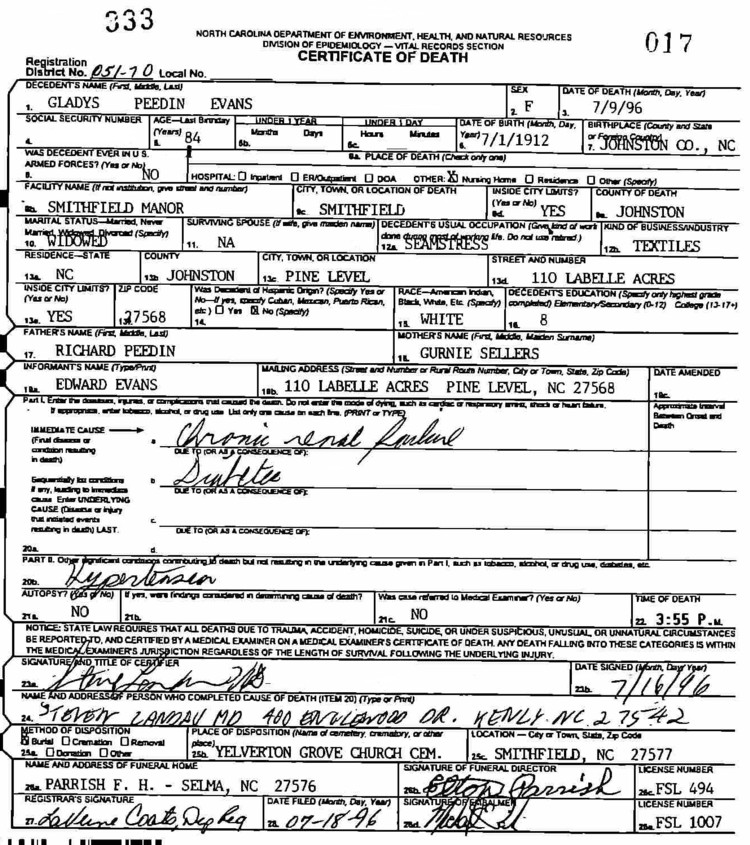 333
017
NORTH CAROLINA DEPARTMENT OF ENVIRONMENT, HEALTH, AND NATURAL RESOURCES
DIVISION OF EPIDEMIOLOGY — VITAL RECORDS SECTION
CERTIFICATE OF DEATH
Registration
District No. 051-70 Local No.
DECEDENT'S NAME (First, Middle, Last) SEX DATE OF DEATH (Month, Day, Year)
1. GLADYS PEEDIN EVANS 2. F 3. 7/9/96
SOCIAL SECURITY NUMBER AGE—Last Birthday UNDER 1 YEAR UNDER 1 DAY DATE OF BIRTH (Month, Day, BIRTHPLACE (County and State
4. (Years) 5. 84 5b. Months Days 5c. Hours Minutes Year) 6. 7/1/1912 or Foreign Country) 7. JOHNSTON CO., NC
WAS DECEDENT EVER IN U.S. 9a. PLACE OF DEATH (Check only one)
ARMED FORCES? (Yes or No)
8. NO HOSPITAL: ☐ Inpatient ☐ ER/Outpatient ☐ DOA OTHER: ☒ Nursing Home ☐ Residence ☐ Other (Specify)
FACILITY NAME (If not institution, give street and number) CITY, TOWN, OR LOCATION OF DEATH INSIDE CITY LIMITS? COUNTY OF DEATH
9b. SMITHFIELD MANOR 9c. SMITHFIELD (Yes or No) 9d. YES 9e. JOHNSTON
MARITAL STATUS—Married, Never SURVIVING SPOUSE (If wife, give maiden name) DECEDENT'S USUAL OCCUPATION (Give kind of work KIND OF BUSINESS/INDUSTRY
Married, Widowed, Divorced (Specify) done during most of working life. Do not use retired.)
10. WIDOWED 11. NA 12a. SEAMSTRESS 12b. TEXTILES
RESIDENCE—STATE COUNTY CITY, TOWN, OR LOCATION STREET AND NUMBER
13a. NC 13b. JOHNSTON 13c. PINE LEVEL 13d. 110 LABELLE ACRES
INSIDE CITY LIMITS? ZIP CODE Was Decedent of Hispanic Origin? (Specify Yes or RACE—American Indian, DECEDENT'S EDUCATION (Specify only highest grade
(Yes or No) No—If yes, specify Cuban, Mexican, Puerto Rican, Black, White, Etc. (Specify) completed) Elementary/Secondary (0-12) College (13-17+)
13e. YES 13f. 27568 14. etc.) ☐ Yes ☒ No (Specify) 15. WHITE 16. 8
FATHER'S NAME (First, Middle, Last) MOTHER'S NAME (First, Middle, Maiden Surname)
17. RICHARD PEEDIN 18. GURNIE SELLERS
INFORMANT'S NAME (Type/Print) MAILING ADDRESS (Street and Number or Rural Route Number, City or Town, State, Zip Code) DATE AMENDED
19a. EDWARD EVANS 19b. 110 LABELLE ACRES PINE LEVEL, NC 27568 19c.
Part I. Enter the diseases, injuries, or complications that caused the death. Do not enter the mode of dying, such as cardiac or respiratory arrest, shock or heart failure. Approximate Interval
If appropriate, enter tobacco, alcohol, or drug use. List only one cause on each line. (PRINT or TYPE) Between Onset and
Death
IMMEDIATE CAUSE
(Final disease or a Chronic renal failure
condition resulting DUE TO (OR AS A CONSEQUENCE OF):
in death)
Sequentially list conditions b Diabetes
if any, leading to immediate DUE TO (OR AS A CONSEQUENCE OF):
cause. Enter UNDERLYING
CAUSE (Disease or injury
that initiated events c.
resulting in death) LAST. DUE TO (OR AS A CONSEQUENCE OF):
20a. d.
PART II. Other significant conditions contributing to death but not resulting in the underlying cause given in Part I, such as tobacco, alcohol, or drug use, diabetes, etc.
20b. Hypertension
AUTOPSY? (Yes or No) If yes, were findings considered in determining cause of death? Was case referred to Medical Examiner? (Yes or No) TIME OF DEATH
21a. NO 21b. 21c. NO 22. 3:55 P.M.
NOTICE: STATE LAW REQUIRES THAT ALL DEATHS DUE TO TRAUMA, ACCIDENT, HOMICIDE, SUICIDE, OR UNDER SUSPICIOUS, UNUSUAL, OR UNNATURAL CIRCUMSTANCES
BE REPORTED TO, AND CERTIFIED BY A MEDICAL EXAMINER ON A MEDICAL EXAMINER'S CERTIFICATE OF DEATH. ANY DEATH FALLING INTO THESE CATEGORIES IS WITHIN
THE MEDICAL EXAMINER'S JURISDICTION REGARDLESS OF THE LENGTH OF SURVIVAL FOLLOWING THE UNDERLYING INJURY.
SIGNATURE AND TITLE OF CERTIFIER DATE SIGNED (Month, Day, Year)
23a. 23b. 7/16/96
NAME AND ADDRESS OF PERSON WHO COMPLETED CAUSE OF DEATH (ITEM 20) (Type or Print)
24. STEVEN LANDAU MD 400 ENGLEWOOD DR. KENLY NC 27542
METHOD OF DISPOSITION PLACE OF DISPOSITION (Name of cemetery, crematory, or other LOCATION — City or Town, State, Zip Code
☒ Burial ☐ Cremation ☐ Removal place)
25a. ☐ Donation ☐ Other 25b. YELVERTON GROVE CHURCH CEM. 25c. SMITHFIELD, NC 27577
NAME AND ADDRESS OF FUNERAL HOME SIGNATURE OF FUNERAL DIRECTOR LICENSE NUMBER
26a. PARRISH F. H. - SELMA, NC 27576 26b. Elton Parrish 26c. FSL 494
REGISTRAR'S SIGNATURE DATE FILED (Month, Day, Year) SIGNATURE OF EMBALMER LICENSE NUMBER
27. LaVerne Coats, Dep Reg 28. 07-18-96 26d. 26e. FSL 1007